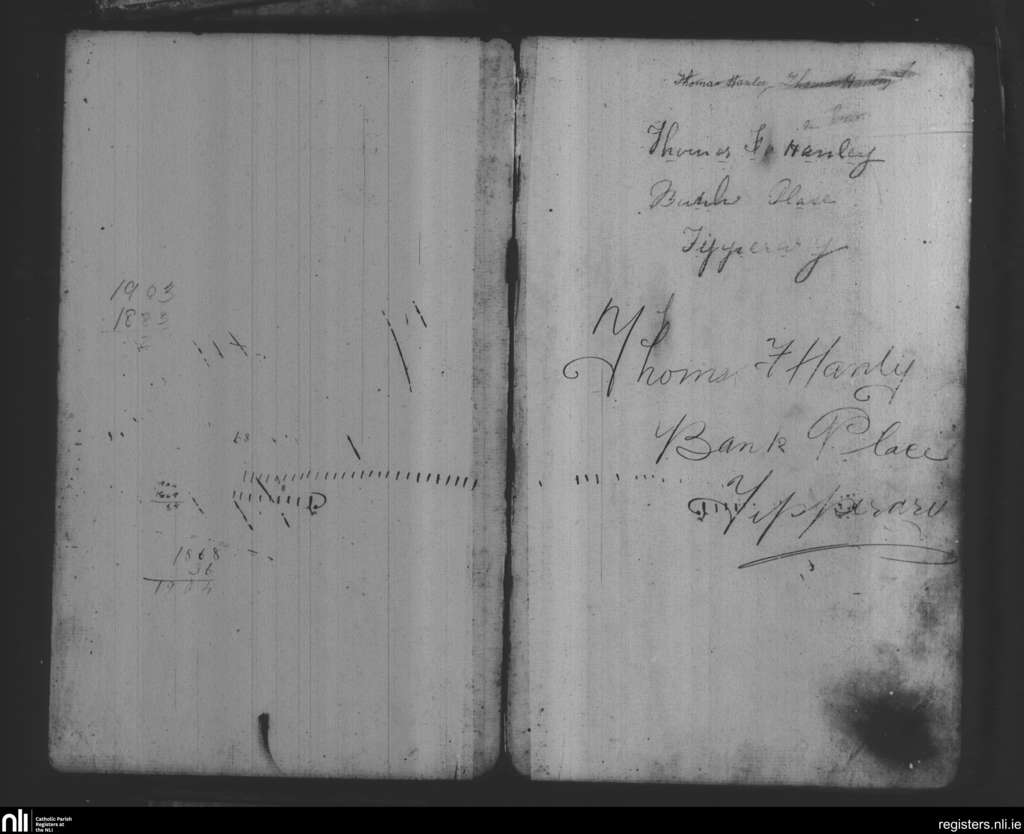 1903
1883
68
1868
36
1904
Thomas Hanley Thomas Hanley
Thomas F. Hanley
Place
Tipperary
Thoms F Hanly
Bank Place
Tipperary
nli Catholic Parish
Registers at
the NLI
registers.nli.ie